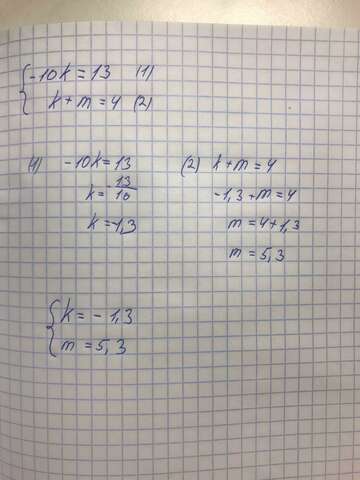 -10k = 13 (1)
k + m = 4 (2)
(1) -10k = 13
k = -13/10
k = -1,3
(2) k + m = 4
-1,3 + m = 4
m = 4 + 1,3
m = 5,3
k = -1,3
m = 5,3